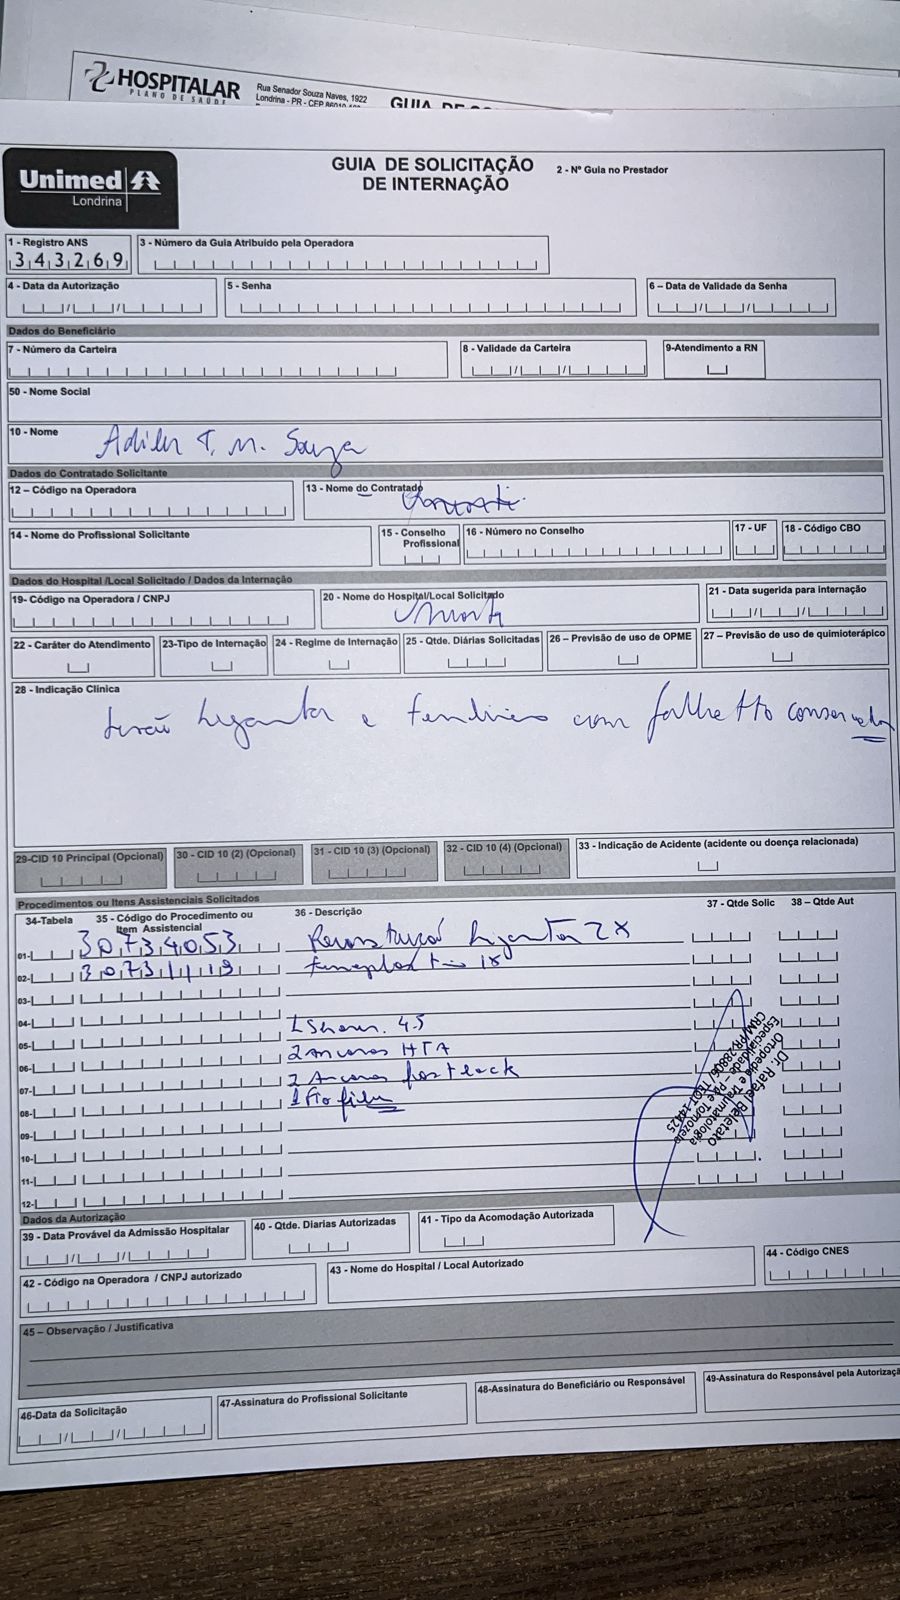 HOSPITALAR
PLANO DE SAÚDE
Rua Senador Souza Naves, 1922
Londrina - PR - CEP
Unimed
Londrina
GUIA DE SOLICITAÇÃO
DE INTERNAÇÃO
2 - Nº Guia no Prestador
1 - Registro ANS
343269
3 - Número da Guia Atribuído pela Operadora
4 - Data da Autorização
5 - Senha
6 – Data de Validade da Senha
Dados do Beneficiário
7 - Número da Carteira
8 - Validade da Carteira
9-Atendimento a RN
50 - Nome Social
10 - Nome
T. M. Souza
Dados do Contratado Solicitante
12 – Código na Operadora
13 - Nome do Contratado
14 - Nome do Profissional Solicitante
15 - Conselho Profissional
16 - Número no Conselho
17 - UF
18 - Código CBO
Dados do Hospital /Local Solicitado / Dados da Internação
19- Código na Operadora / CNPJ
20 - Nome do Hospital/Local Solicitado
21 - Data sugerida para internação
22 - Caráter do Atendimento
23-Tipo de Internação
24 - Regime de Internação
25 - Qtde. Diárias Solicitadas
26 – Previsão de uso de OPME
27 – Previsão de uso de quimioterápico
28 - Indicação Clínica
e com conservador
29-CID 10 Principal (Opcional)
30 - CID 10 (2) (Opcional)
31 - CID 10 (3) (Opcional)
32 - CID 10 (4) (Opcional)
33 - Indicação de Acidente (acidente ou doença relacionada)
Procedimentos ou Itens Assistenciais Solicitados
34-Tabela
35 - Código do Procedimento ou Item Assistencial
36 - Descrição
37 - Qtde Solic
38 – Qtde Aut
01- 30734053 2X
02- 30731119
03-
04-
05- 4.5
06- 2 Ancoras HTA
07- 2 Ancoras
08- 1 Fio
09-
10-
11-
12-
Dr. Rafael Beletato
Ortopedia e Traumatologia
Especialidade - Pé e Tornozelo
CRM/PR 28806 / TEOT 14425
Dados da Autorização
39 - Data Provável da Admissão Hospitalar
40 - Qtde. Diarias Autorizadas
41 - Tipo da Acomodação Autorizada
42 - Código na Operadora / CNPJ autorizado
43 - Nome do Hospital / Local Autorizado
44 - Código CNES
45 – Observação / Justificativa
46-Data da Solicitação
47-Assinatura do Profissional Solicitante
48-Assinatura do Beneficiário ou Responsável
49-Assinatura do Responsável pela Autorização